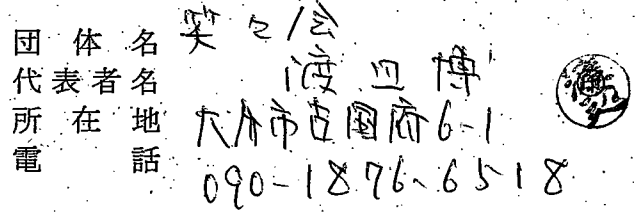 団体名 笑々会
代表者名 渡辺 博
所在地 大分市古国府6-1
電話 090-1876-6518